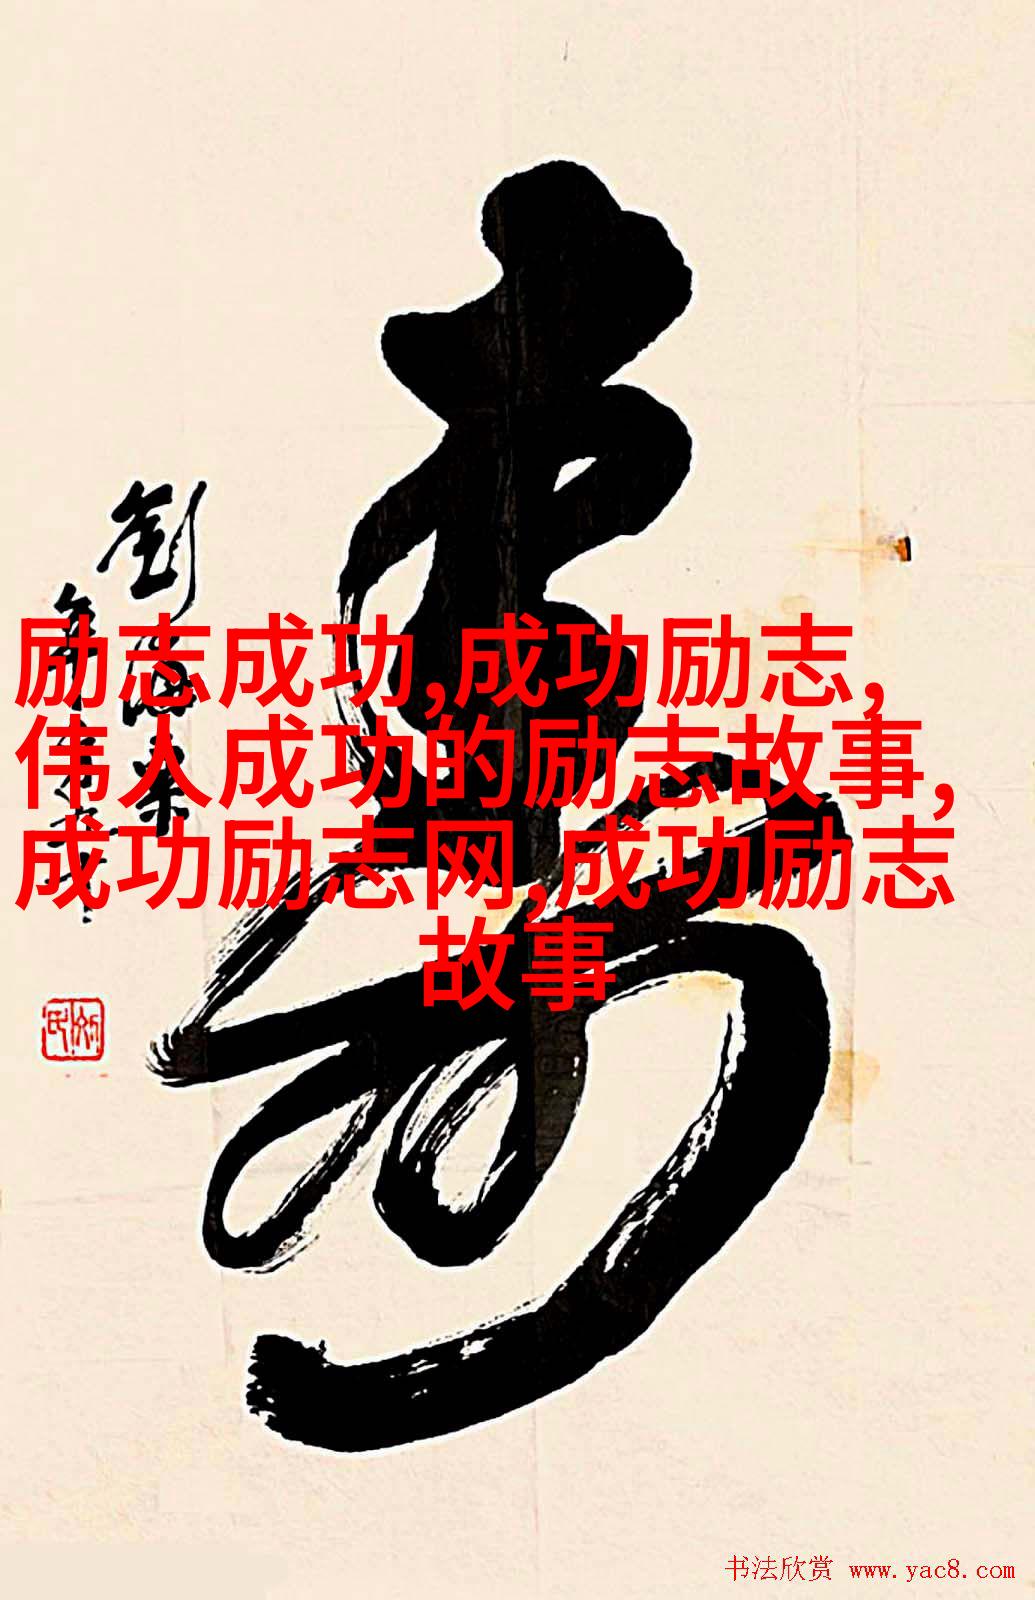 寿
劉海粟
年九十
励志成功,成功励志,
伟人成功的励志故事,
成功励志网,成功励志
故事
书法欣赏 www.yac8.com